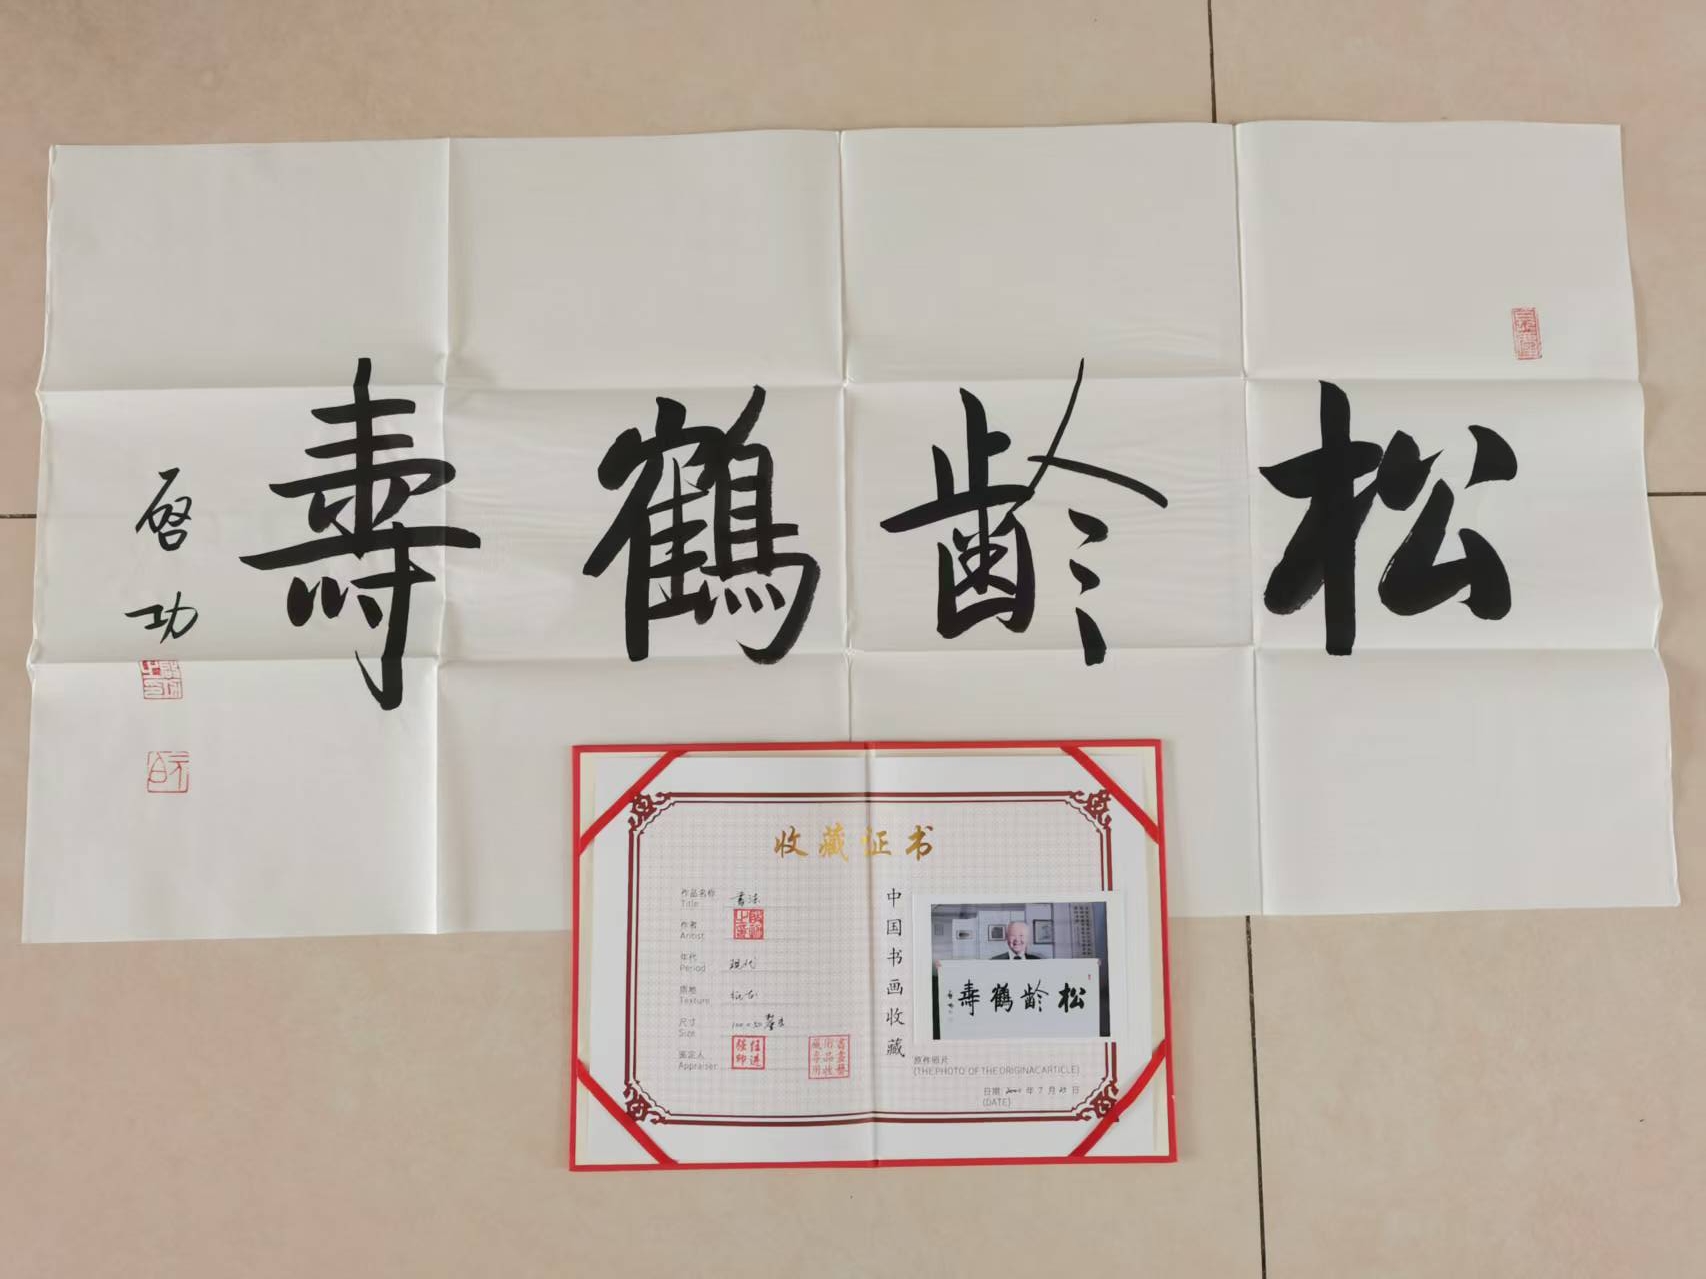 松龄鶴壽
启功
收藏证书
作品名称 书法
Title
作者
Artist
年代 现代
Period
质地
Texture
尺寸
Size
鉴定人
Appraiser
中国书画收藏
松龄鶴壽
原作照片
(THE PHOTO OF THE ORIGINACARTICLE)
日期 年 7 月 日
(DATE)